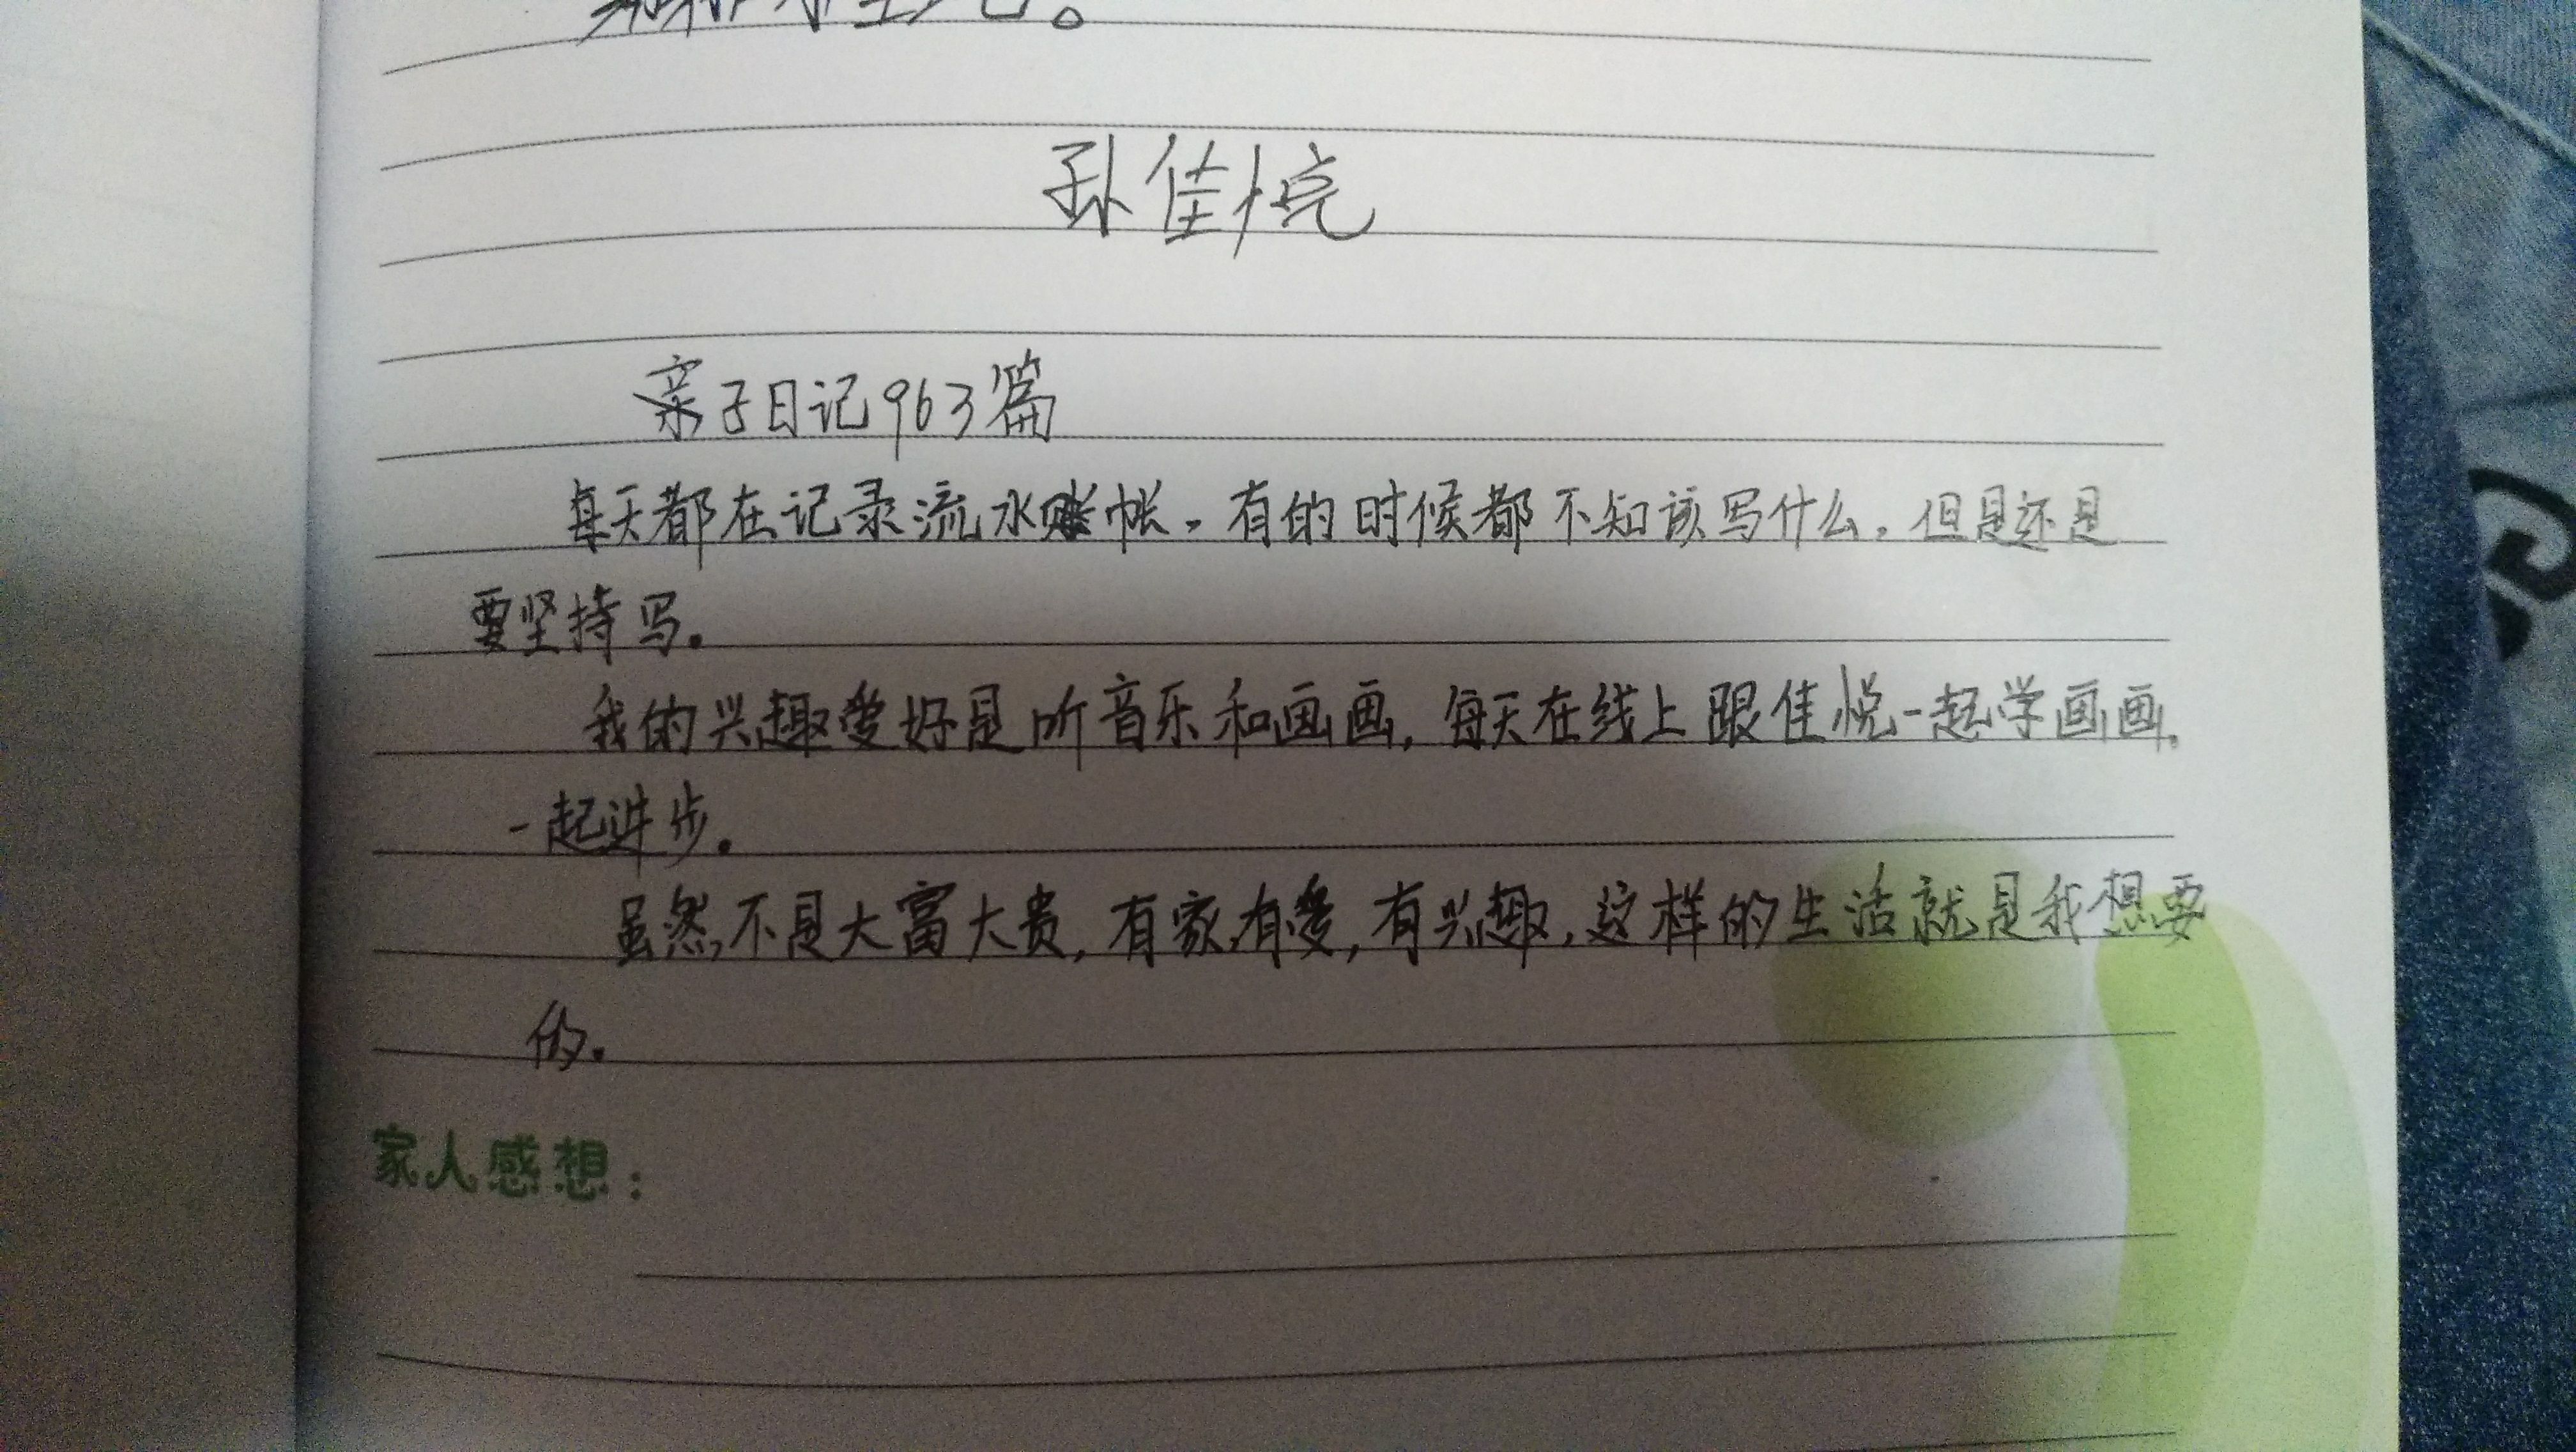 孙佳悦
亲子日记963篇
每天都在记录流水帐。有的时候都不知该写什么。但是还是
要坚持写。
我的兴趣爱好是听音乐和画画,每天在线上跟佳悦一起学画画。
一起进步。
虽然不是大富大贵,有家有爱,有兴趣,这样的生活就是我想要
的。
家人感想: